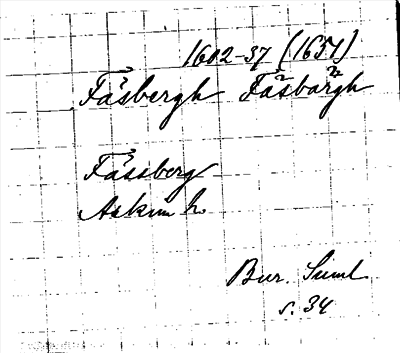 1602-37 (1651)
Fåsbergh Fåsbargh
Fåssberg
Askim h.
Bur. Suml
s. 34